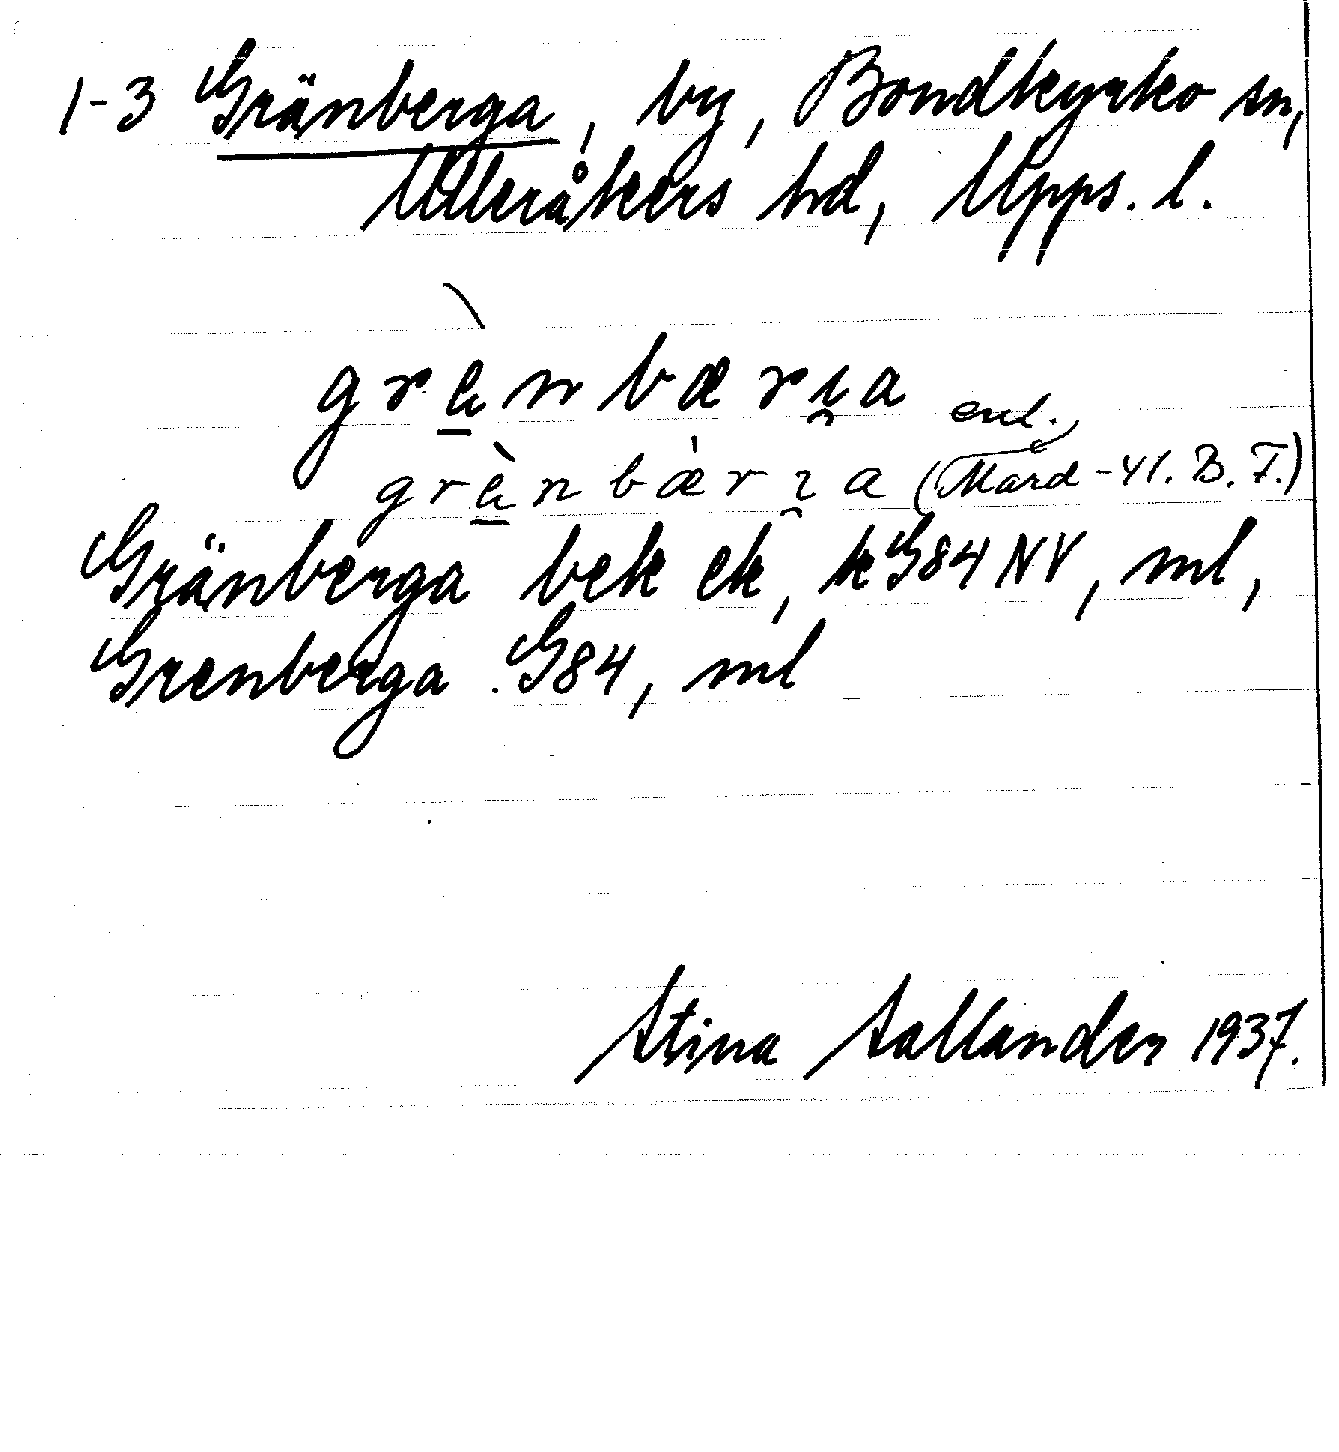 1-3 Gränberga, by, Bondkyrko sn,
Ulleråkers hd, Upps. l.
grä̀nbærɪa enl.
grä̀nbærɪa (Mard -41. B. F.)
Gränberga bek ek, k G84 NV, ml,
Grenberga G84, ml
Stina Sallander 1937.